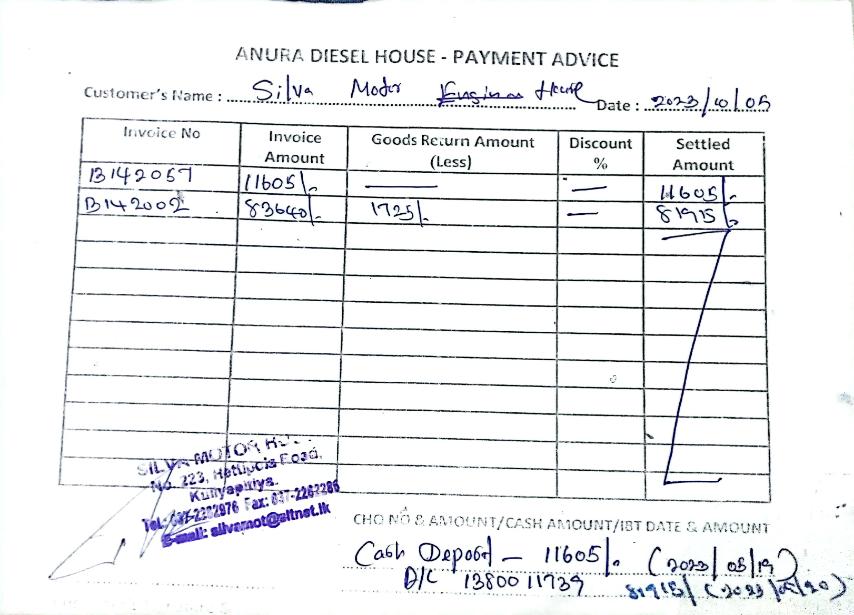 ANURA DIESEL HOUSE - PAYMENT ADVICE
Customer's Name : Silva Motor House Date : 2023/10/05
Invoice No Invoice Amount Goods Return Amount (Less) Discount % Settled Amount
B142057 11605/. — — 11605/.
B142002 83640/. 1725/. — 81915/.
SILVA MOTOR
No. 223, Road,
Kuliyapitiya.
Tel: 037-2282876 Fax: 037-2282286
E-mail: silvamot@sltnet.lk
CHQ NO & AMOUNT/CASH AMOUNT/IBT DATE & AMOUNT
Cash Deposit – 11605/. (2023/05/19)
A/C 13800 11739
81915/ (2023/